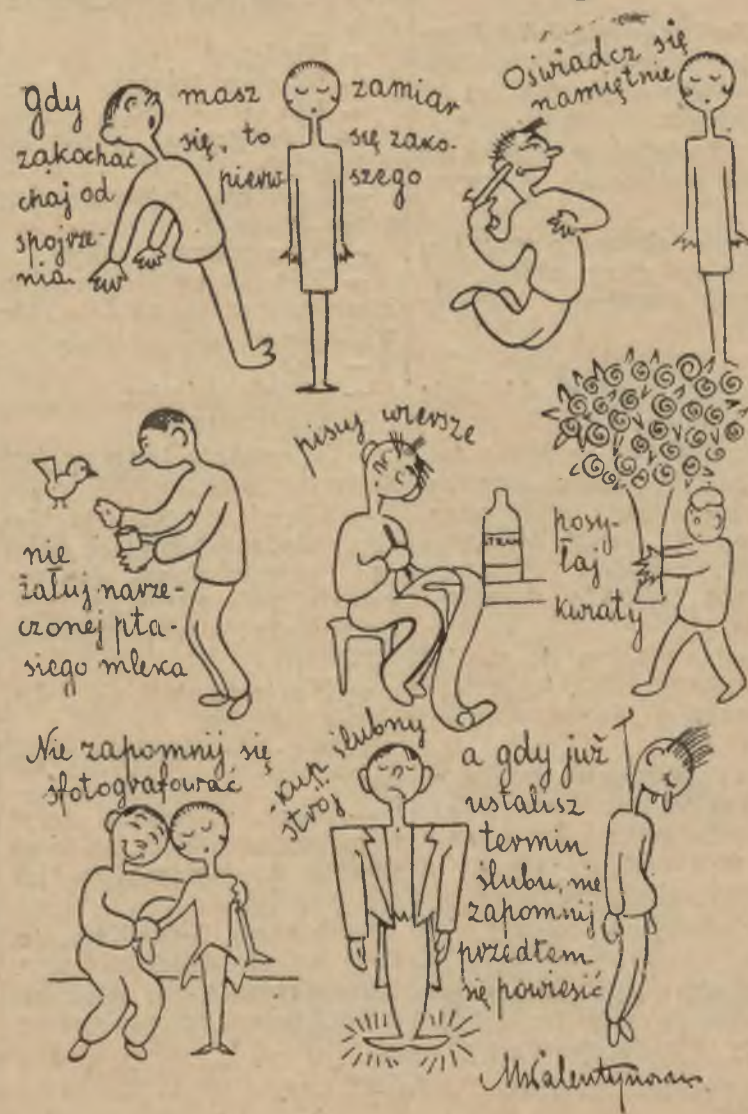 Gdy masz zamiar
zakochać się, to się zako-
chaj od pierw szego
spojrze-
nia.
Oświadcz się
namiętnie
nie
żałuj narze-
czonej pta-
siego mleka
pisuj wiersze
posy-
łaj
kwiaty
Nie zapomnij się
sfotografować
kup ślubny
strój
a gdy już
ustalisz
termin
ślubu, nie
zapomnij
przedtem
się powiesić